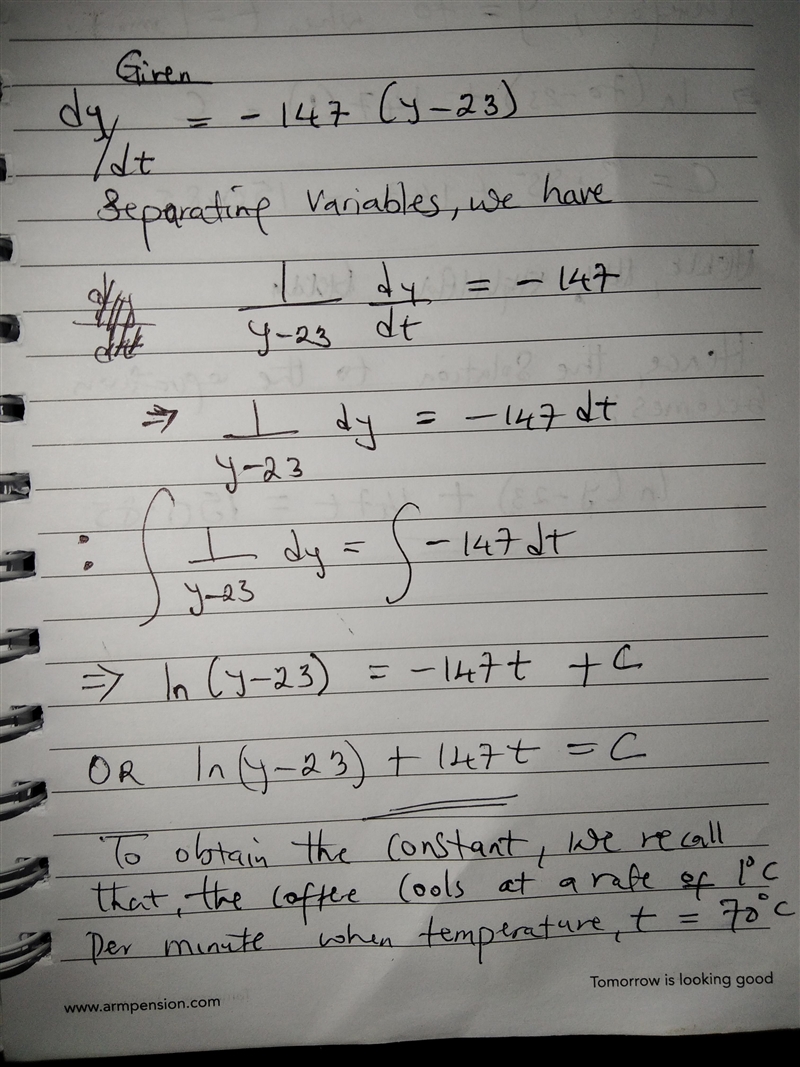 Given
dy/dt = - 147 (y-23)
Separating Variables, we have
1/y-23 dy/dt = - 147
⇒ 1/y-23 dy = - 147 dt
∴ ∫ 1/y-23 dy = ∫ - 147 dt
⇒ ln (y-23) = -147t + C
OR ln(y-23) + 147t = C
To obtain the constant, we recall
that, the coffee cools at a rate of 1°C
per minute when temperature, t = 70°C
Tomorrow is looking good
www.armpension.com